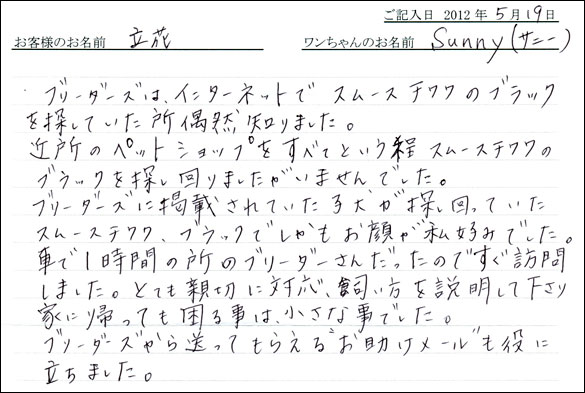 ご記入日 2012年5月19日
お客様のお名前 立花 ワンちゃんのお名前 Sunny(サニー)
ブリーダーズは、インターネットで スムースチワワのブラック
を探していた所偶然知りました。
近所のペットショップをすべてという程 スムースチワワの
ブラックを探し回りましたがいませんでした。
ブリーダーズに掲載されていた子犬が探し回っていた
スムースチワワ、ブラックでしかもお顔が私好みでした。
車で1時間の所のブリーダーさんだったのですぐ訪問
しました。とても親切に対応、飼い方を説明して下さり
家に帰っても困る事は、小さな事でした。
ブリーダーズから送ってもらえる"お助けメール"も役に
立ちました。